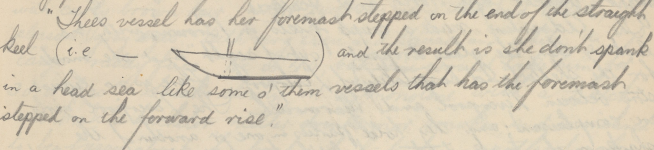 "Thees vessel has her foremast stepped on the end of the straight
keel (i.e. — ) and the result is she don't spank
in a head sea like some o' them vessels that has the foremast
stepped on the forward rise."